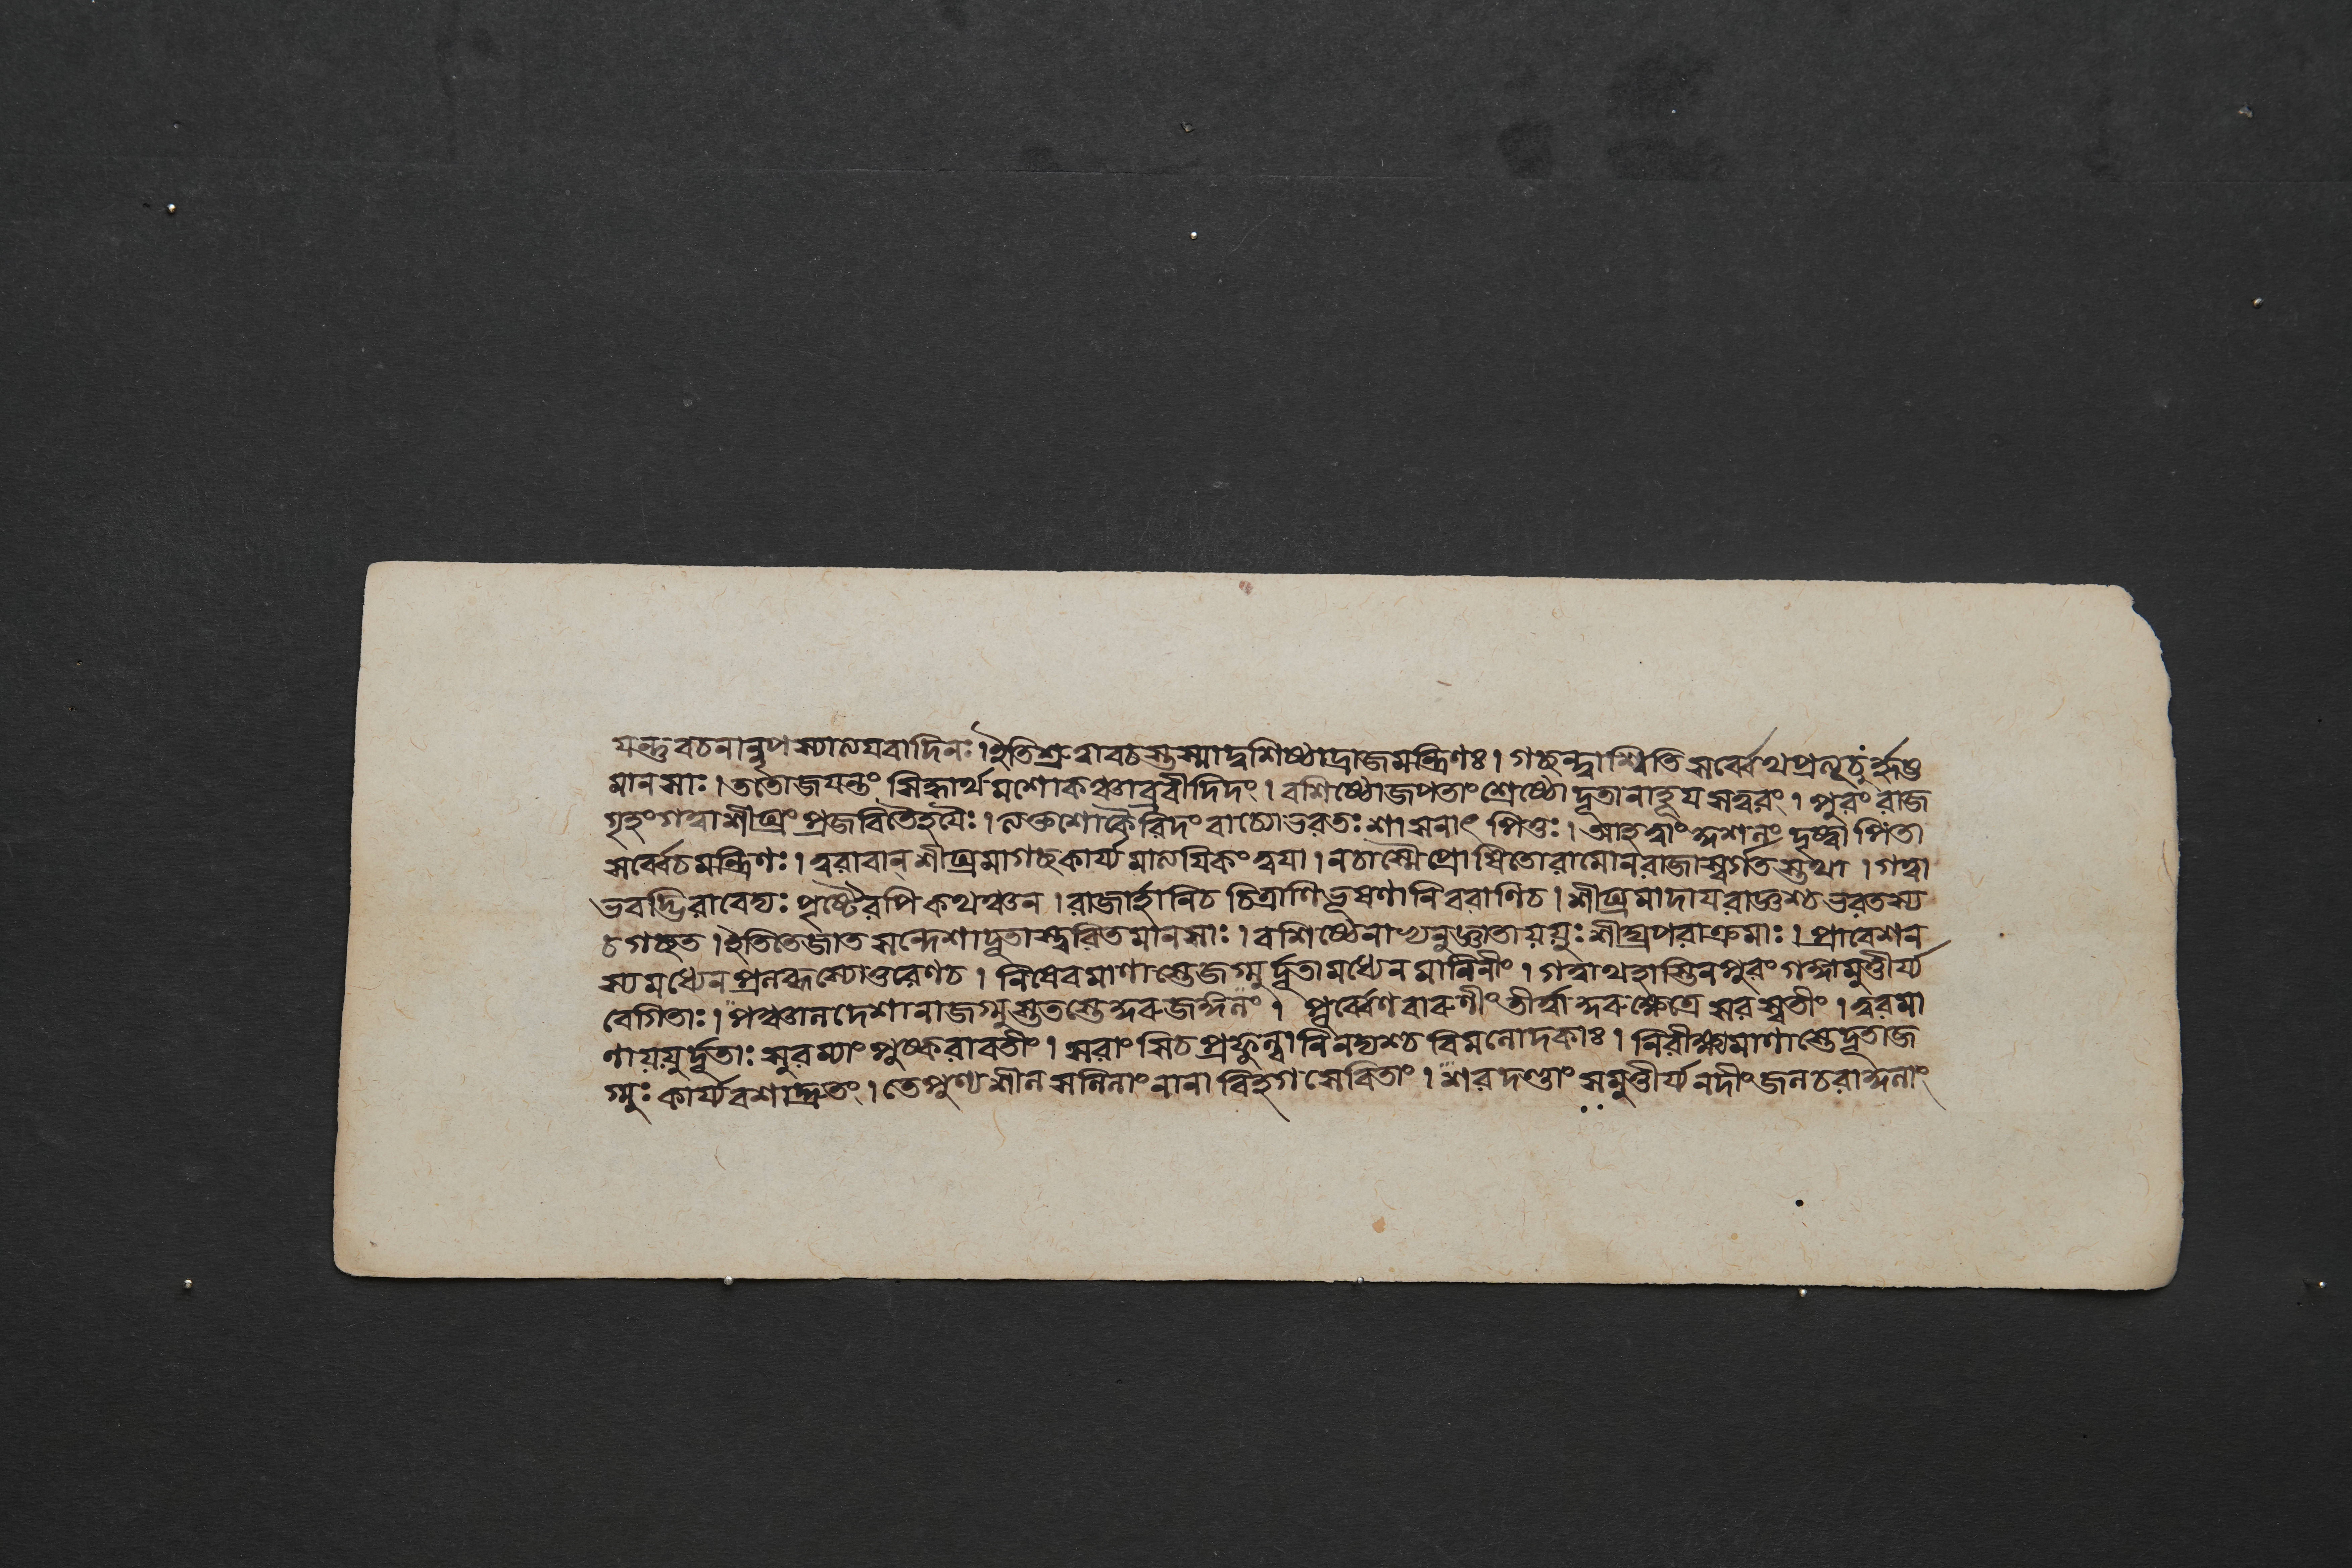 যন্তু বচনান্নৃপস্যালযবাদিনঃ। ইতি শ্রুত্বা বচস্তস্মাদ্বশিষ্ঠাদ্রাজমন্ত্রিণঃ। গচ্ছন্ত্বাশ্বিতি সর্ব্বেথ প্রত্যূচুর্হৃষ্ট
মানসাঃ। ততো জযন্তং সিদ্ধার্থমশোকঞ্চাব্রবীদিদং। বশিষ্ঠো জপতাং শ্রেষ্ঠো দূতানাহূয সত্বরং। পুরং রাজ
গৃহং গত্বা শীঘ্রং প্রজবিতৈর্হযৈঃ। ত্যক্তশোকৈরিদং বাচ্যো ভরতঃ শাসনাৎ পিতুঃ। আহ ত্বাং কুশলং দৃষ্ট্বা পিতা
সর্ব্বে চ মন্ত্রিণঃ। ত্বরাবান্ শীঘ্রমাগচ্ছ কার্য্যমাত্যযিকং ত্বযা। ন চাস্মৈ প্রোষিতো রামো ন রাজা স্বর্গতস্তথা। গত্বা
ভবদ্ভিরাবেদ্যঃ পৃষ্টৈরপি কথঞ্চন। রাজার্হানি চ চিত্রাণি ভূষণানি বরাণি চ। শীঘ্রমাদায রাজ্ঞশ্চ ভরতস্য
চ গচ্ছত। ইতি তে জাতসন্দেশা দূতাস্ত্বরিতমানসাঃ। বশিষ্ঠেনাভ্যনুজ্ঞাতা যযুঃ শীঘ্রপরাক্রমাঃ। প্রাবেশন
স্য মধ্যেন প্রলম্বস্যোত্তরেণ চ। নিষেবমাণাস্তে জগ্মুর্দ্দূতা মধ্যেন মালিনীং। গত্বাথ হাস্তিনপুরং গঙ্গামুত্তীর্য্য
বেগিতাঃ। পঞ্চালদেশানাজগ্মুস্ততস্তে কুরুজঙ্গলং। পূর্ব্বেণ বারুণীং তীর্ত্বা কুরুক্ষেত্রে সরস্বতীং। ত্বরমা
ণা যযুর্দ্দূতাঃ সুরম্যাং পুষ্করাবতীং। সরাংসি চ প্রফুল্লানি নদ্যশ্চ বিমলোদকাঃ। নিরীক্ষ্যমাণাস্তে দূতা জ
গ্মুঃ কার্য্যবশাদ্দ্রুতং। তে পুণ্যশীলসলিলাং নানাবিহগসেবিতাং। শরদণ্ডাং সমুত্তীর্য্য নদীং জলচরাকুলাং